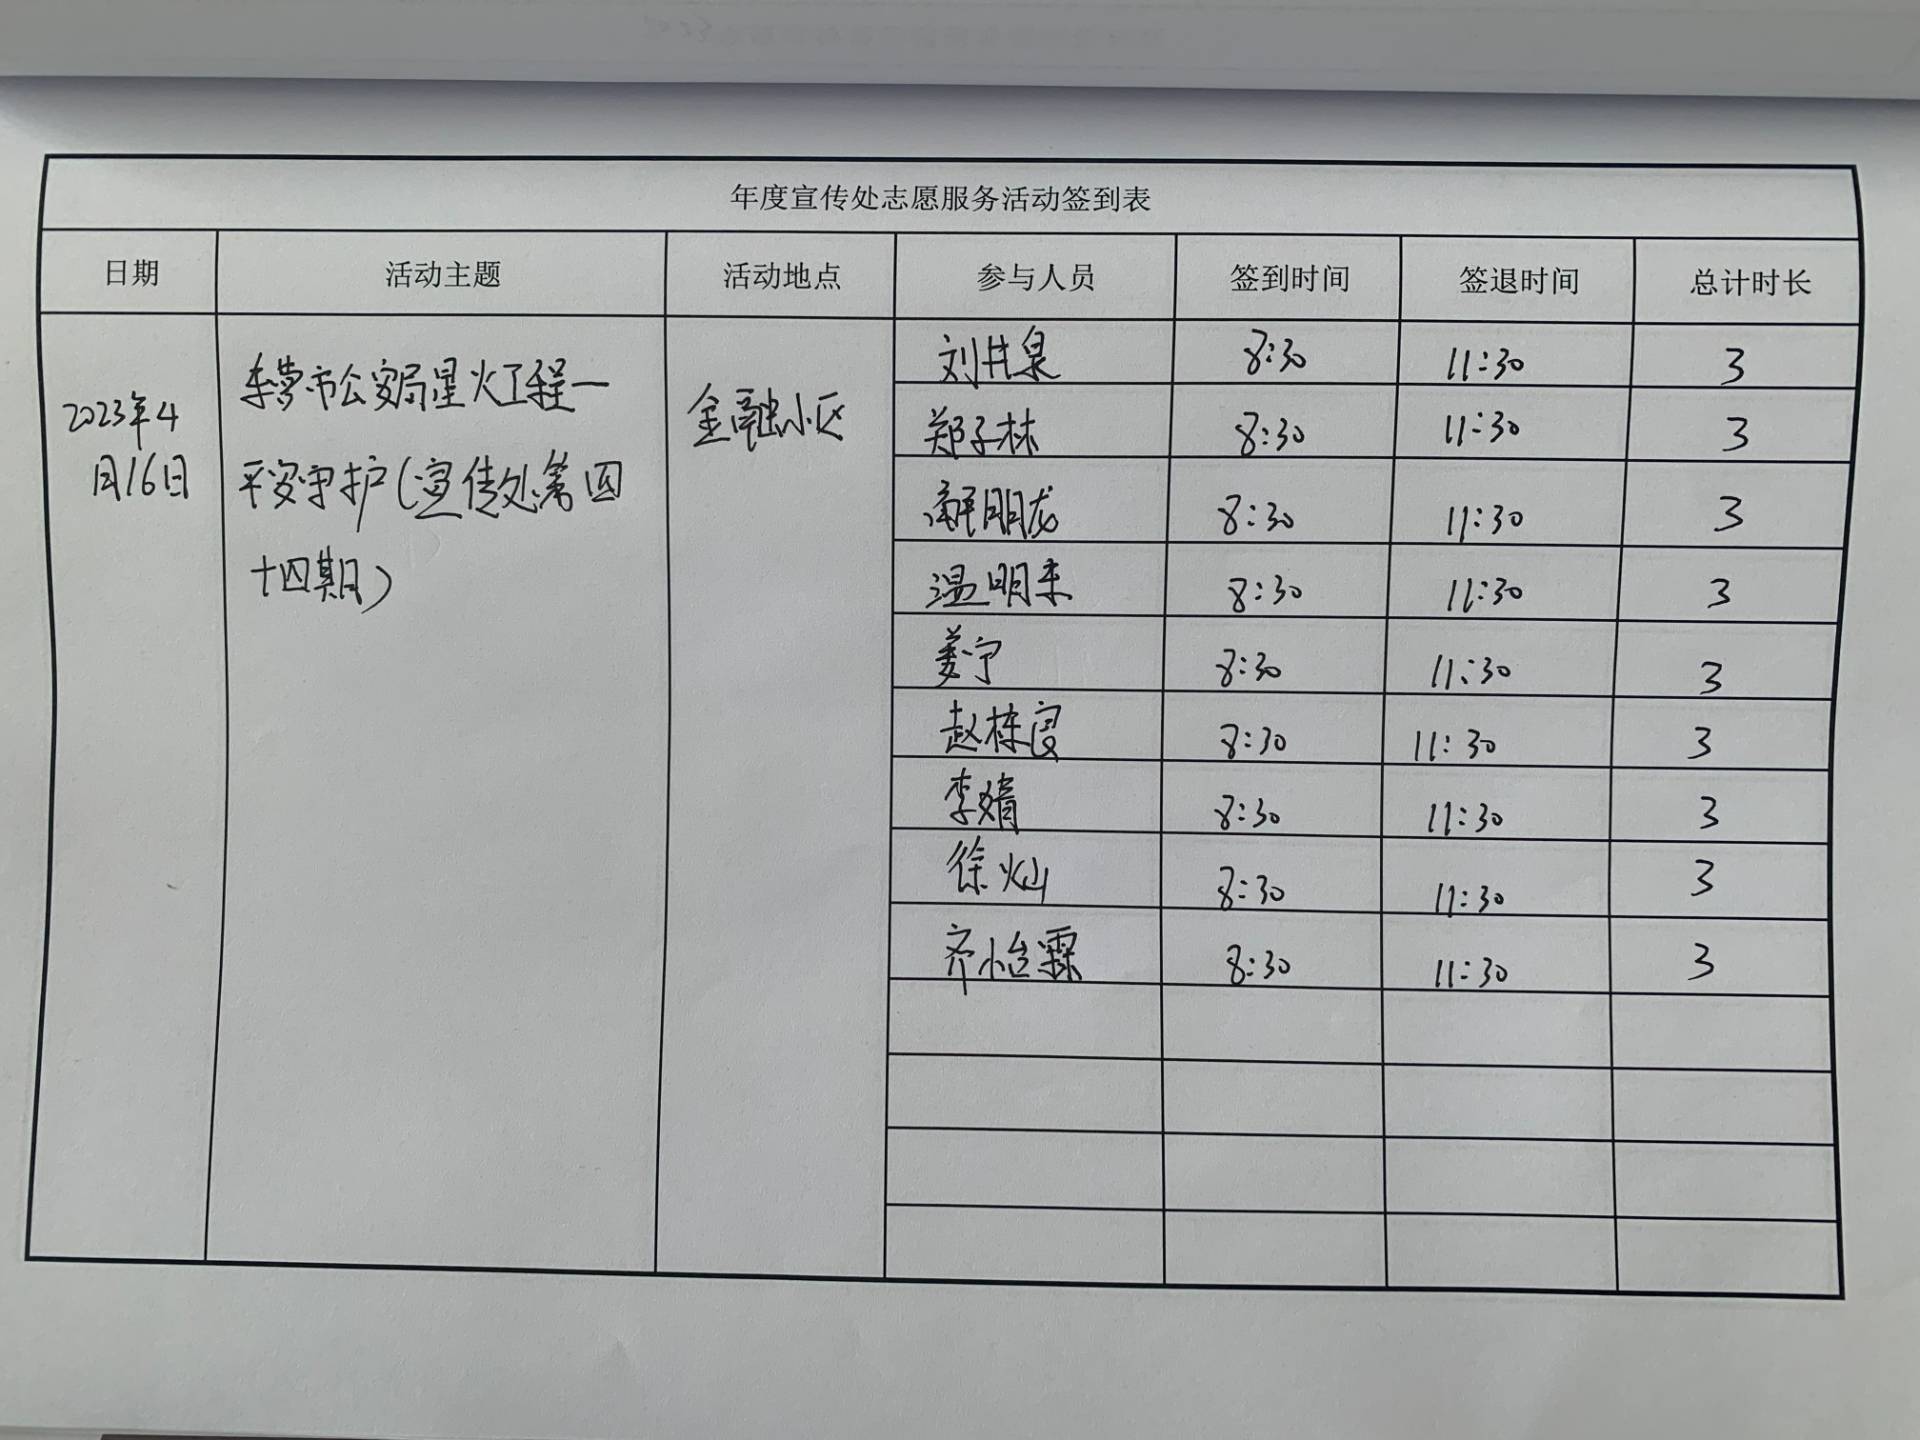 年度宣传处志愿服务活动签到表
日期 活动主题 活动地点 参与人员 签到时间 签退时间 总计时长
2023年4
月16日
市公安局星火工程一
平安守护(宣传处第四
十四期)
金融小区
刘井泉 8:30 11:30 3
郑子林 8:30 11:30 3
朋龙 8:30 11:30 3
温明来 8:30 11:30 3
姜宁 8:30 11:30 3
赵栋 8:30 11:30 3
李婧 8:30 11:30 3
徐灿 8:30 11:30 3
齐怡霖 8:30 11:30 3